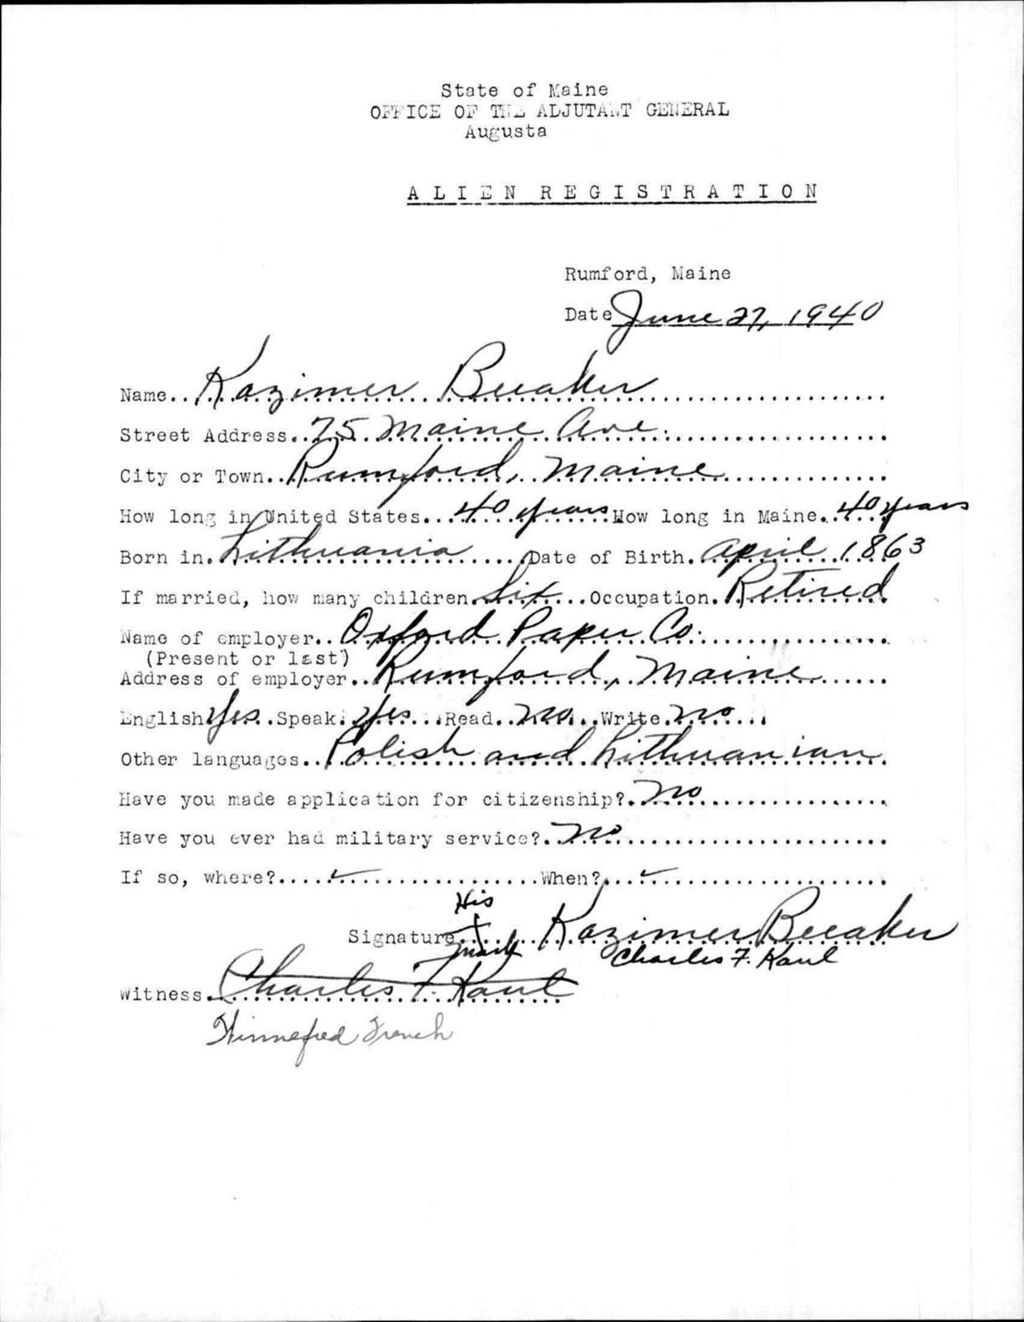 State of Maine
OFFICE OF THE ADJUTANT GENERAL
Augusta
ALIEN REGISTRATION
Rumford, Maine
Date June 27, 1940
Name.. Kazimer Beeaker
Street Address.. 75 Maine Ave.
City or Town.. Rumford, Maine
How long in United States... 40 years How long in Maine.. 40 years
Born in. Lithuania Date of Birth. April 1863
If married, how many children. Six ... Occupation. Retired
Name of employer.. Oxford Paper Co.
(Present or last)
Address of employer.. Rumford, Maine
English Yes. Speak. Yes ... Read.. No... Write. No....
Other languages.. Polish and Lithuanian
Have you made application for citizenship?. No
Have you ever had military service?. No
If so, where?.... ✓ When?... ✓
His
Signature X Kazimer Beeaker
mark Charles F. Kaul
Witness. Charles F. Kaul
Winnefred French